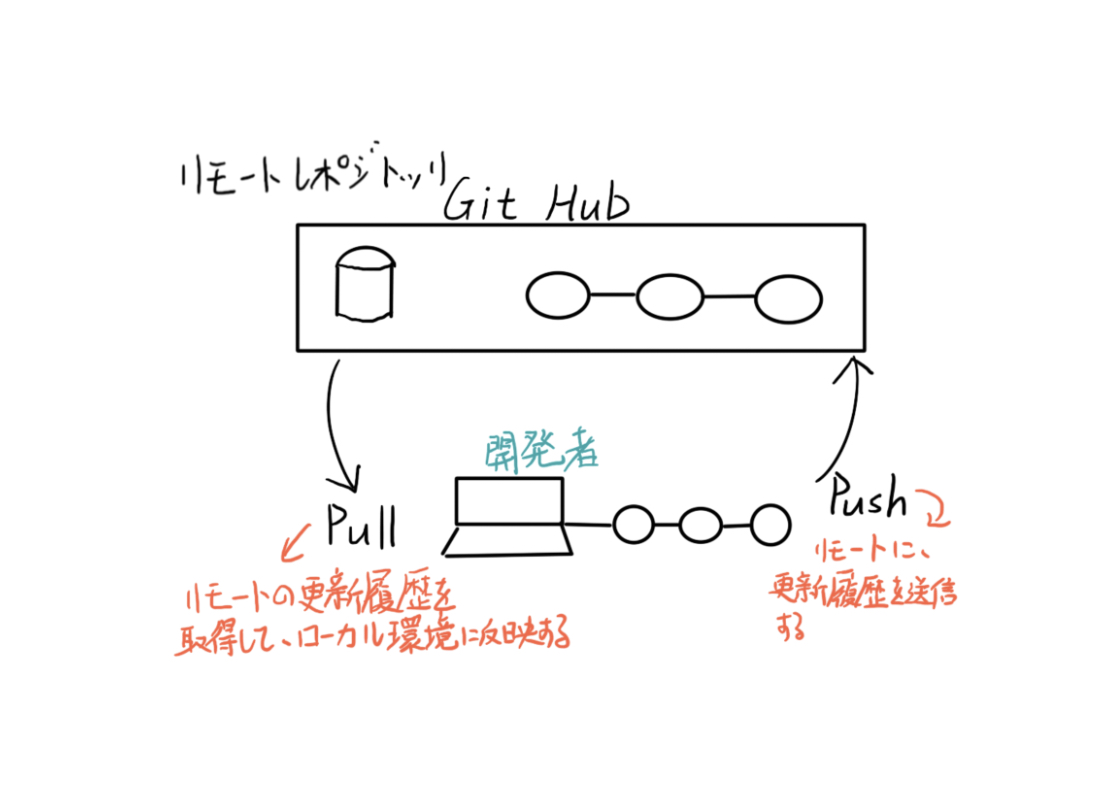 リモートレポジトッリ
Git Hub
開発者
Pull
Push
リモートの更新履歴を
取得して、ローカル環境に反映する
リモートに、
更新履歴を送信
する